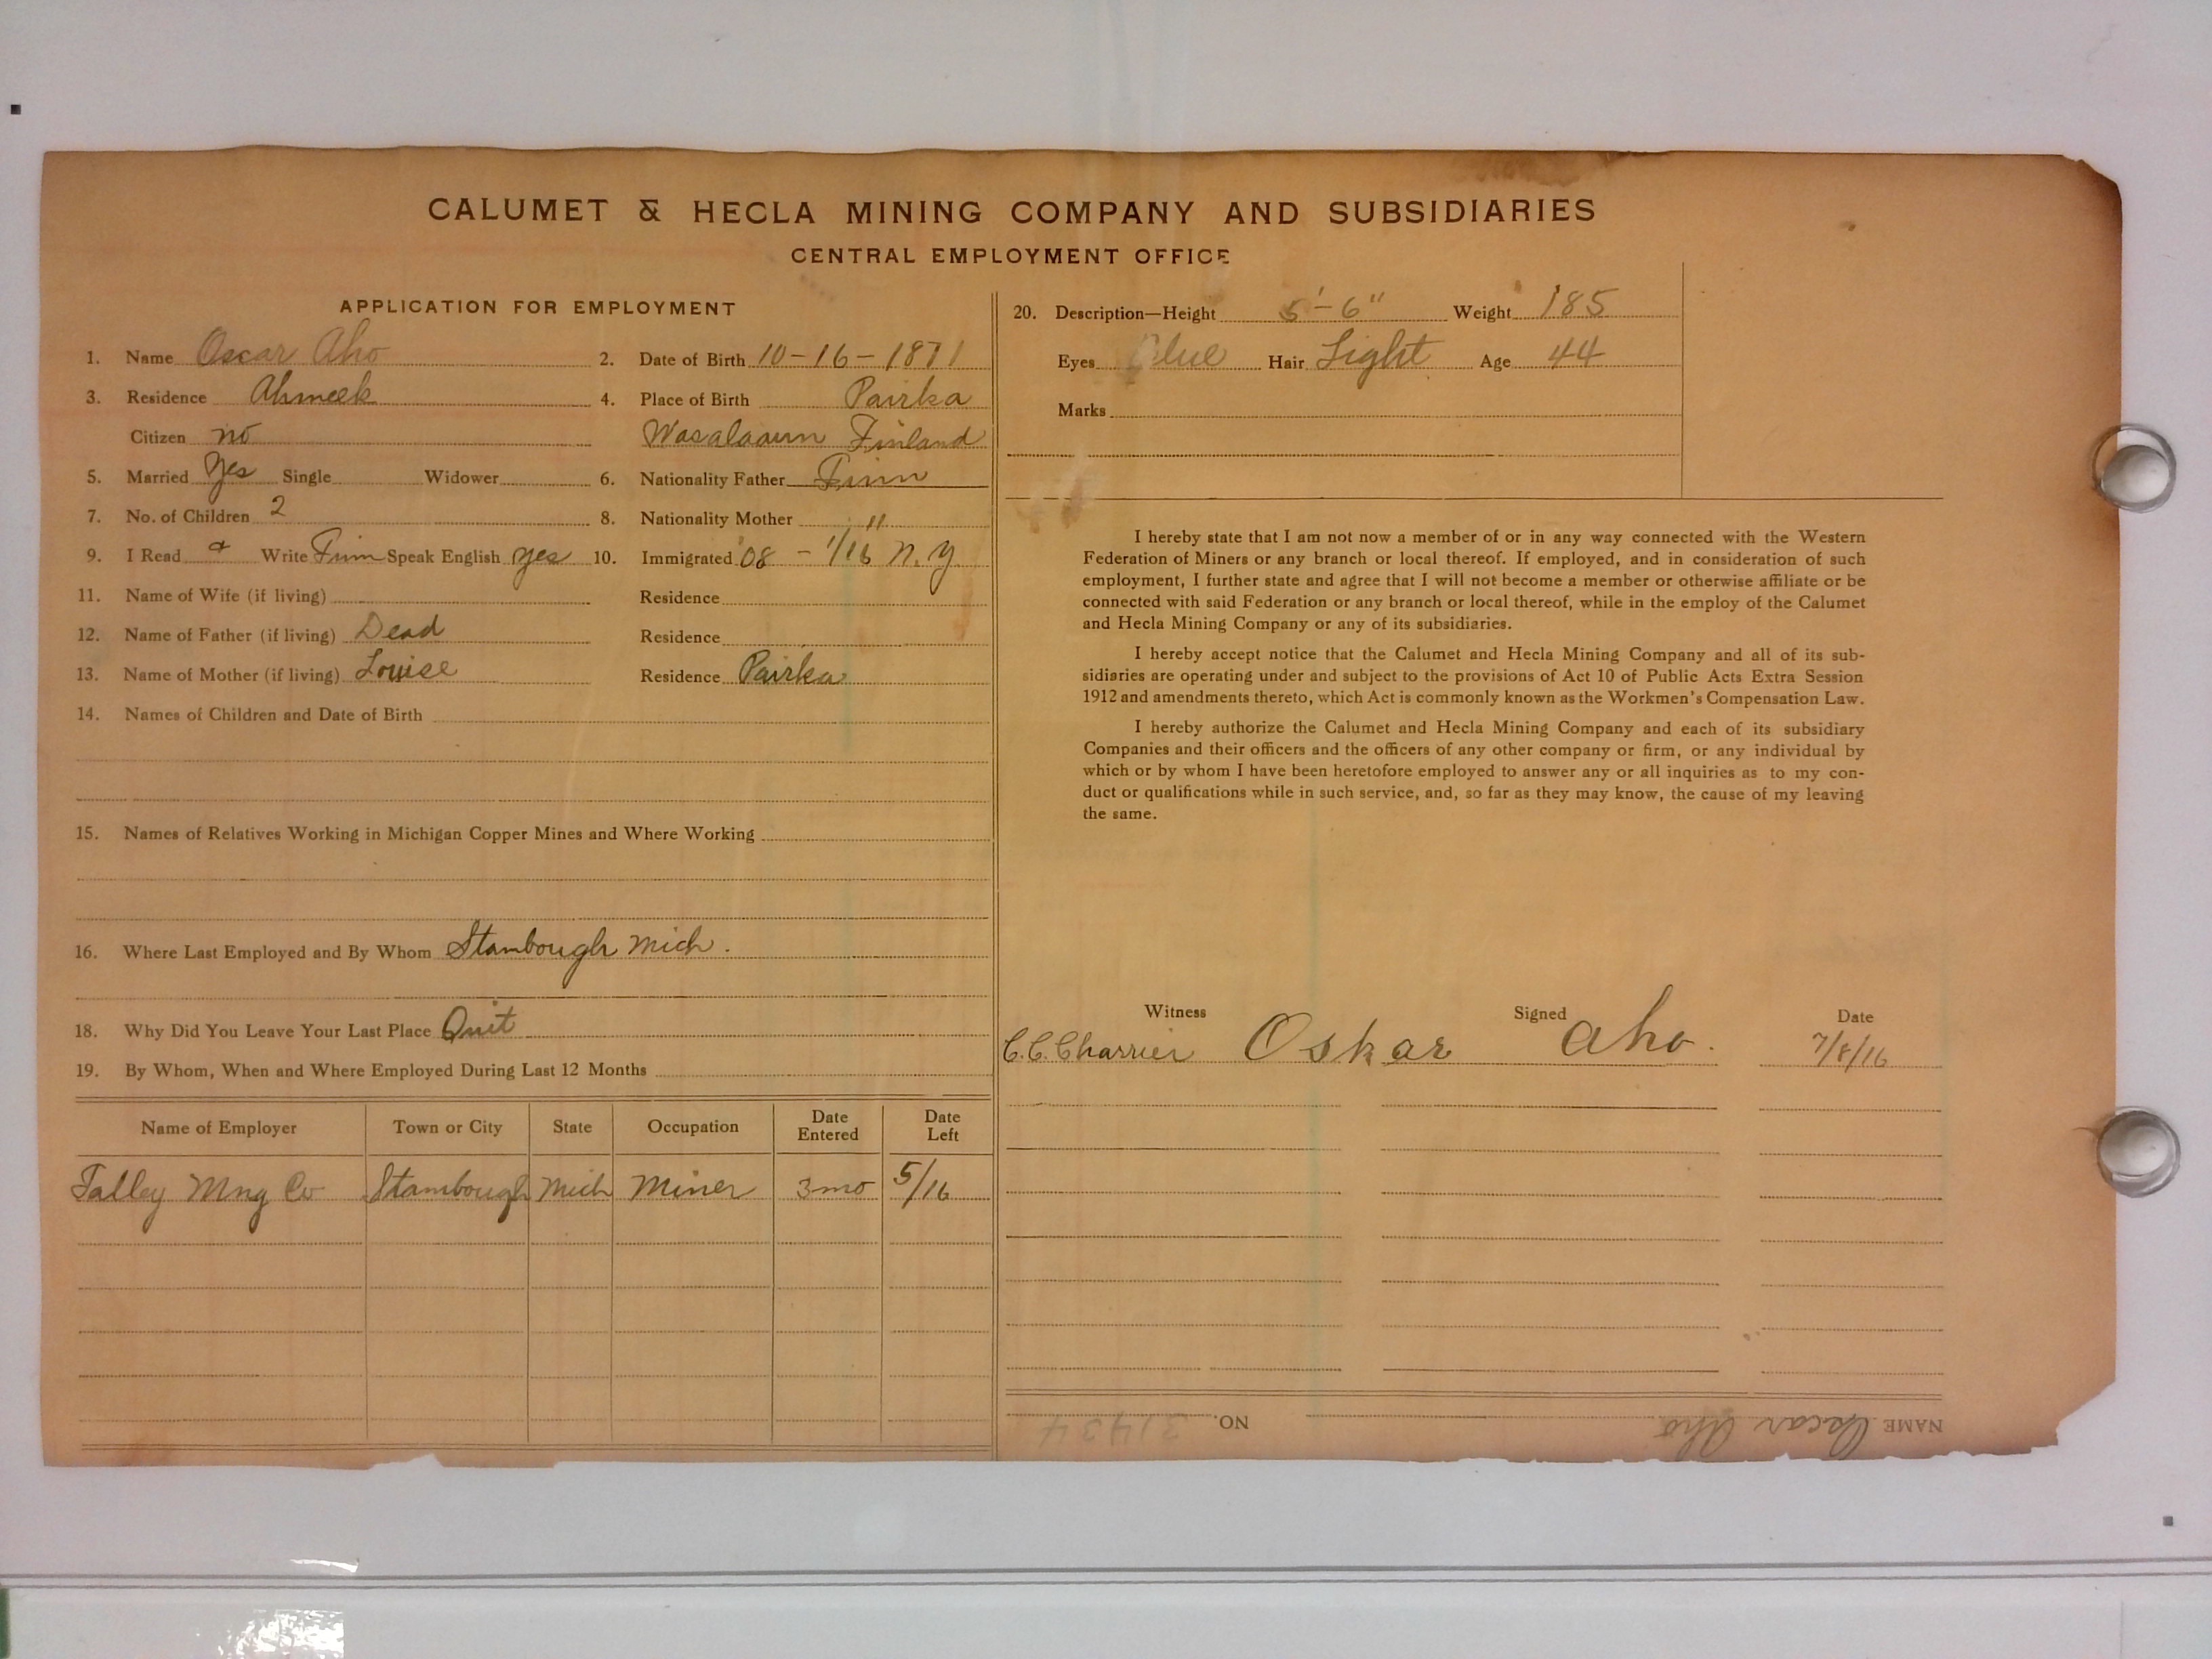 CALUMET & HECLA MINING COMPANY AND SUBSIDIARIES
CENTRAL EMPLOYMENT OFFICE
APPLICATION FOR EMPLOYMENT
1. Name Oscar Aho 2. Date of Birth 10-16-1871
3. Residence Ahmeek 4. Place of Birth Pairka
Citizen no Wasalaaun Finland
5. Married Yes Single Widower 6. Nationality Father Finn
7. No. of Children 2 8. Nationality Mother "
9. I Read & Write Finn Speak English yes 10. Immigrated '08 - 1/16 N.Y.
11. Name of Wife (if living) Residence
12. Name of Father (if living) Dead Residence
13. Name of Mother (if living) Louise Residence Pairka
14. Names of Children and Date of Birth
15. Names of Relatives Working in Michigan Copper Mines and Where Working
16. Where Last Employed and By Whom Stambough Mich.
18. Why Did You Leave Your Last Place Quit
19. By Whom, When and Where Employed During Last 12 Months
Name of Employer Town or City State Occupation Date Entered Date Left
Talley Mng Co Stambough Mich Miner 3 mo 5/16
20. Description—Height 5'-6" Weight 185
Eyes Blue Hair Light Age 44
Marks
I hereby state that I am not now a member of or in any way connected with the Western
Federation of Miners or any branch or local thereof. If employed, and in consideration of such
employment, I further state and agree that I will not become a member or otherwise affiliate or be
connected with said Federation or any branch or local thereof, while in the employ of the Calumet
and Hecla Mining Company or any of its subsidiaries.
I hereby accept notice that the Calumet and Hecla Mining Company and all of its sub-
sidiaries are operating under and subject to the provisions of Act 10 of Public Acts Extra Session
1912 and amendments thereto, which Act is commonly known as the Workmen's Compensation Law.
I hereby authorize the Calumet and Hecla Mining Company and each of its subsidiary
Companies and their officers and the officers of any other company or firm, or any individual by
which or by whom I have been heretofore employed to answer any or all inquiries as to my con-
duct or qualifications while in such service, and, so far as they may know, the cause of my leaving
the same.
Witness Signed Date
C.C. Charrier Oskar aho. 7/8/16
NAME Oscar Aho NO. 31434